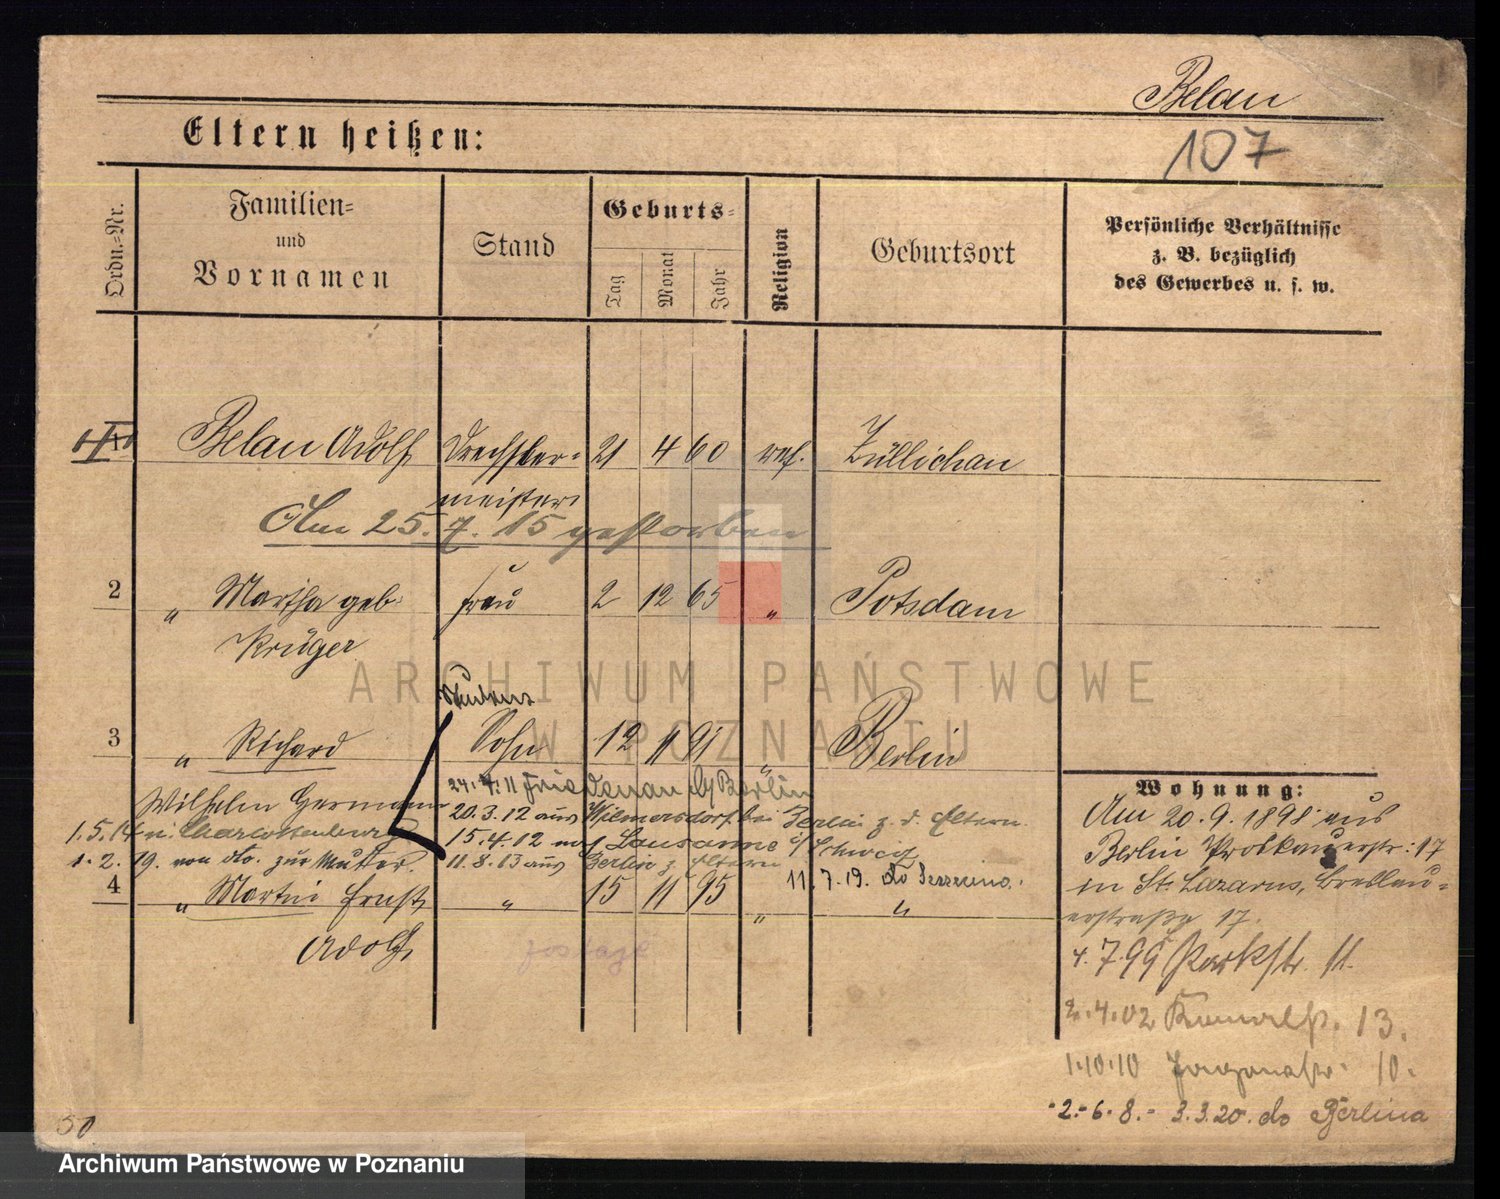 Belau
107
Eltern heißen:
Ordn.-Nr.
Familien-
und
Vornamen
Stand
Geburts-
Tag
Monat
Jahr
Religion
Geburtsort
Persönliche Verhältnisse
z. B. bezüglich
des Gewerbes u. s. w.
Belau Adolf Drechsler- 21 4 60 ref. Züllichau
meister
Am 25. 7. 15 gestorben
2 " Martha geb. Frau 2 12 65 " Potsdam
Krüger
ARCHIWUM PAŃSTWOWE
W POZNANIU
3 " Richard Sohn 12 11 91 " Berlin
Wilhelm Hermann
24.4.11 Friedenau b/Berlin
20.3.12 aus Wilmersdorf bei Berlin z. d. Eltern.
1.5.14 n. Charlottenburg
15.4.12 n. Lausanne i/Schweiz
1.2.19. von do. zur Mutter.
11.8.13 aus Berlin z. Eltern
11.7.19. do
4 " Martin Ernst " 15 11 95 " "
Adolf
Wohnung:
Am 20.9.1898 aus
Berlin Proskauerstr: 17
in St. Lazarus, Breslau-
erstraße 17.
4.7.99 Parkstr. 11.
2.4.02 Kanalstr. 13.
1.10.10 10.
2.-6.8.- 3.3.20. do Berlina
50
Archiwum Państwowe w Poznaniu